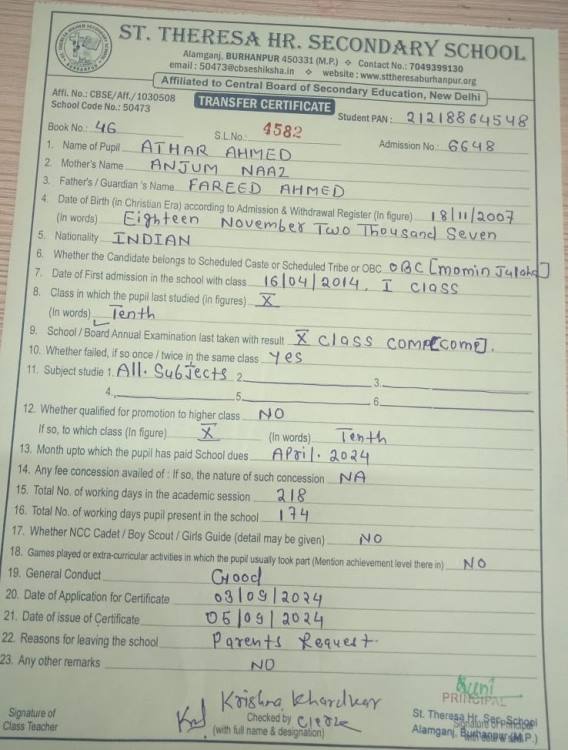 ST. THERESA HR. SECONDARY SCHOOL
Alamganj, BURHANPUR 450331 (M.P.) ❖ Contact No.: 7049399130
email : 50473@cbseshiksha.in ❖ website : www.sttheresaburhanpur.org
Affiliated to Central Board of Secondary Education, New Delhi
Affi. No.: CBSE/Aff./1030508
School Code No.: 50473
TRANSFER CERTIFICATE
Student PAN : 21218864548
Book No.: 46 S.L.No.: 4582 Admission No.: 6648
1. Name of Pupil ATHAR AHMED
2. Mother's Name ANJUM NAAZ
3. Father's / Guardian 's Name FAREED AHMED
4. Date of Birth (in Christian Era) according to Admission & Withdrawal Register (in figure) 18/11/2007
(in words) Eighteen November Two Thousand Seven
5. Nationality INDIAN
6. Whether the Candidate belongs to Scheduled Caste or Scheduled Tribe or OBC OBC [Momin Julaha]
7. Date of First admission in the school with class 16/04/2014. I class
8. Class in which the pupil last studied (in figures) X
(In words) Tenth
9. School / Board Annual Examination last taken with result X class COMP[come].
10. Whether failed, if so once / twice in the same class Yes
11. Subject studie 1. All. Subjects 2. 3.
4. 5. 6.
12. Whether qualified for promotion to higher class NO
If so, to which class (In figure) X (In words) Tenth
13. Month upto which the pupil has paid School dues April. 2024
14. Any fee concession availed of : If so, the nature of such concession NA
15. Total No. of working days in the academic session 218
16. Total No. of working days pupil present in the school 174
17. Whether NCC Cadet / Boy Scout / Girls Guide (detail may be given) NO
18. Games played or extra-curricular activities in which the pupil usually took part (Mention achievement level there in) NO
19. General Conduct Good
20. Date of Application for Certificate 03/09/2024
21. Date of issue of Certificate 05/09/2024
22. Reasons for leaving the school Parents Request.
23. Any other remarks NO
Krishna Khardkar
PRINCIPAL
Signature of
Class Teacher
Checked by Clerk
(with full name & designation)
St. Theresa Hr. Sec. School
Signature of Principal
Alamganj, Burhanpur (M.P.)